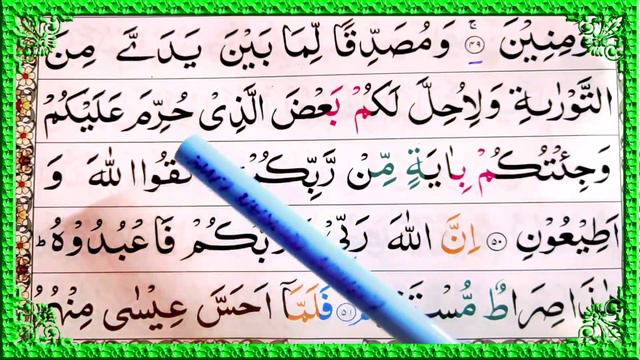 مِنِيْنَ ۝۴۹ وَمُصَدِّقًا لِّمَا بَيْنَ يَدَيَّ مِنَ
التَّوْرٰىةِ وَلِاُحِلَّ لَكُمْ بَعْضَ الَّذِىْ حُرِّمَ عَلَيْكُمْ
وَجِئْتُكُمْ بِاٰيَةٍ مِّنْ رَّبِّكُمْ اللّٰهَ وَ
اَطِيْعُوْنِ ۝۵۰ اِنَّ اللّٰهَ رَبِّىْ فَاعْبُدُوْهُ ؕ
صِرَاطٌ ۝۵۱ فَلَمَّاۤ اَحَسَّ عِيْسٰى مِنْهُمُ